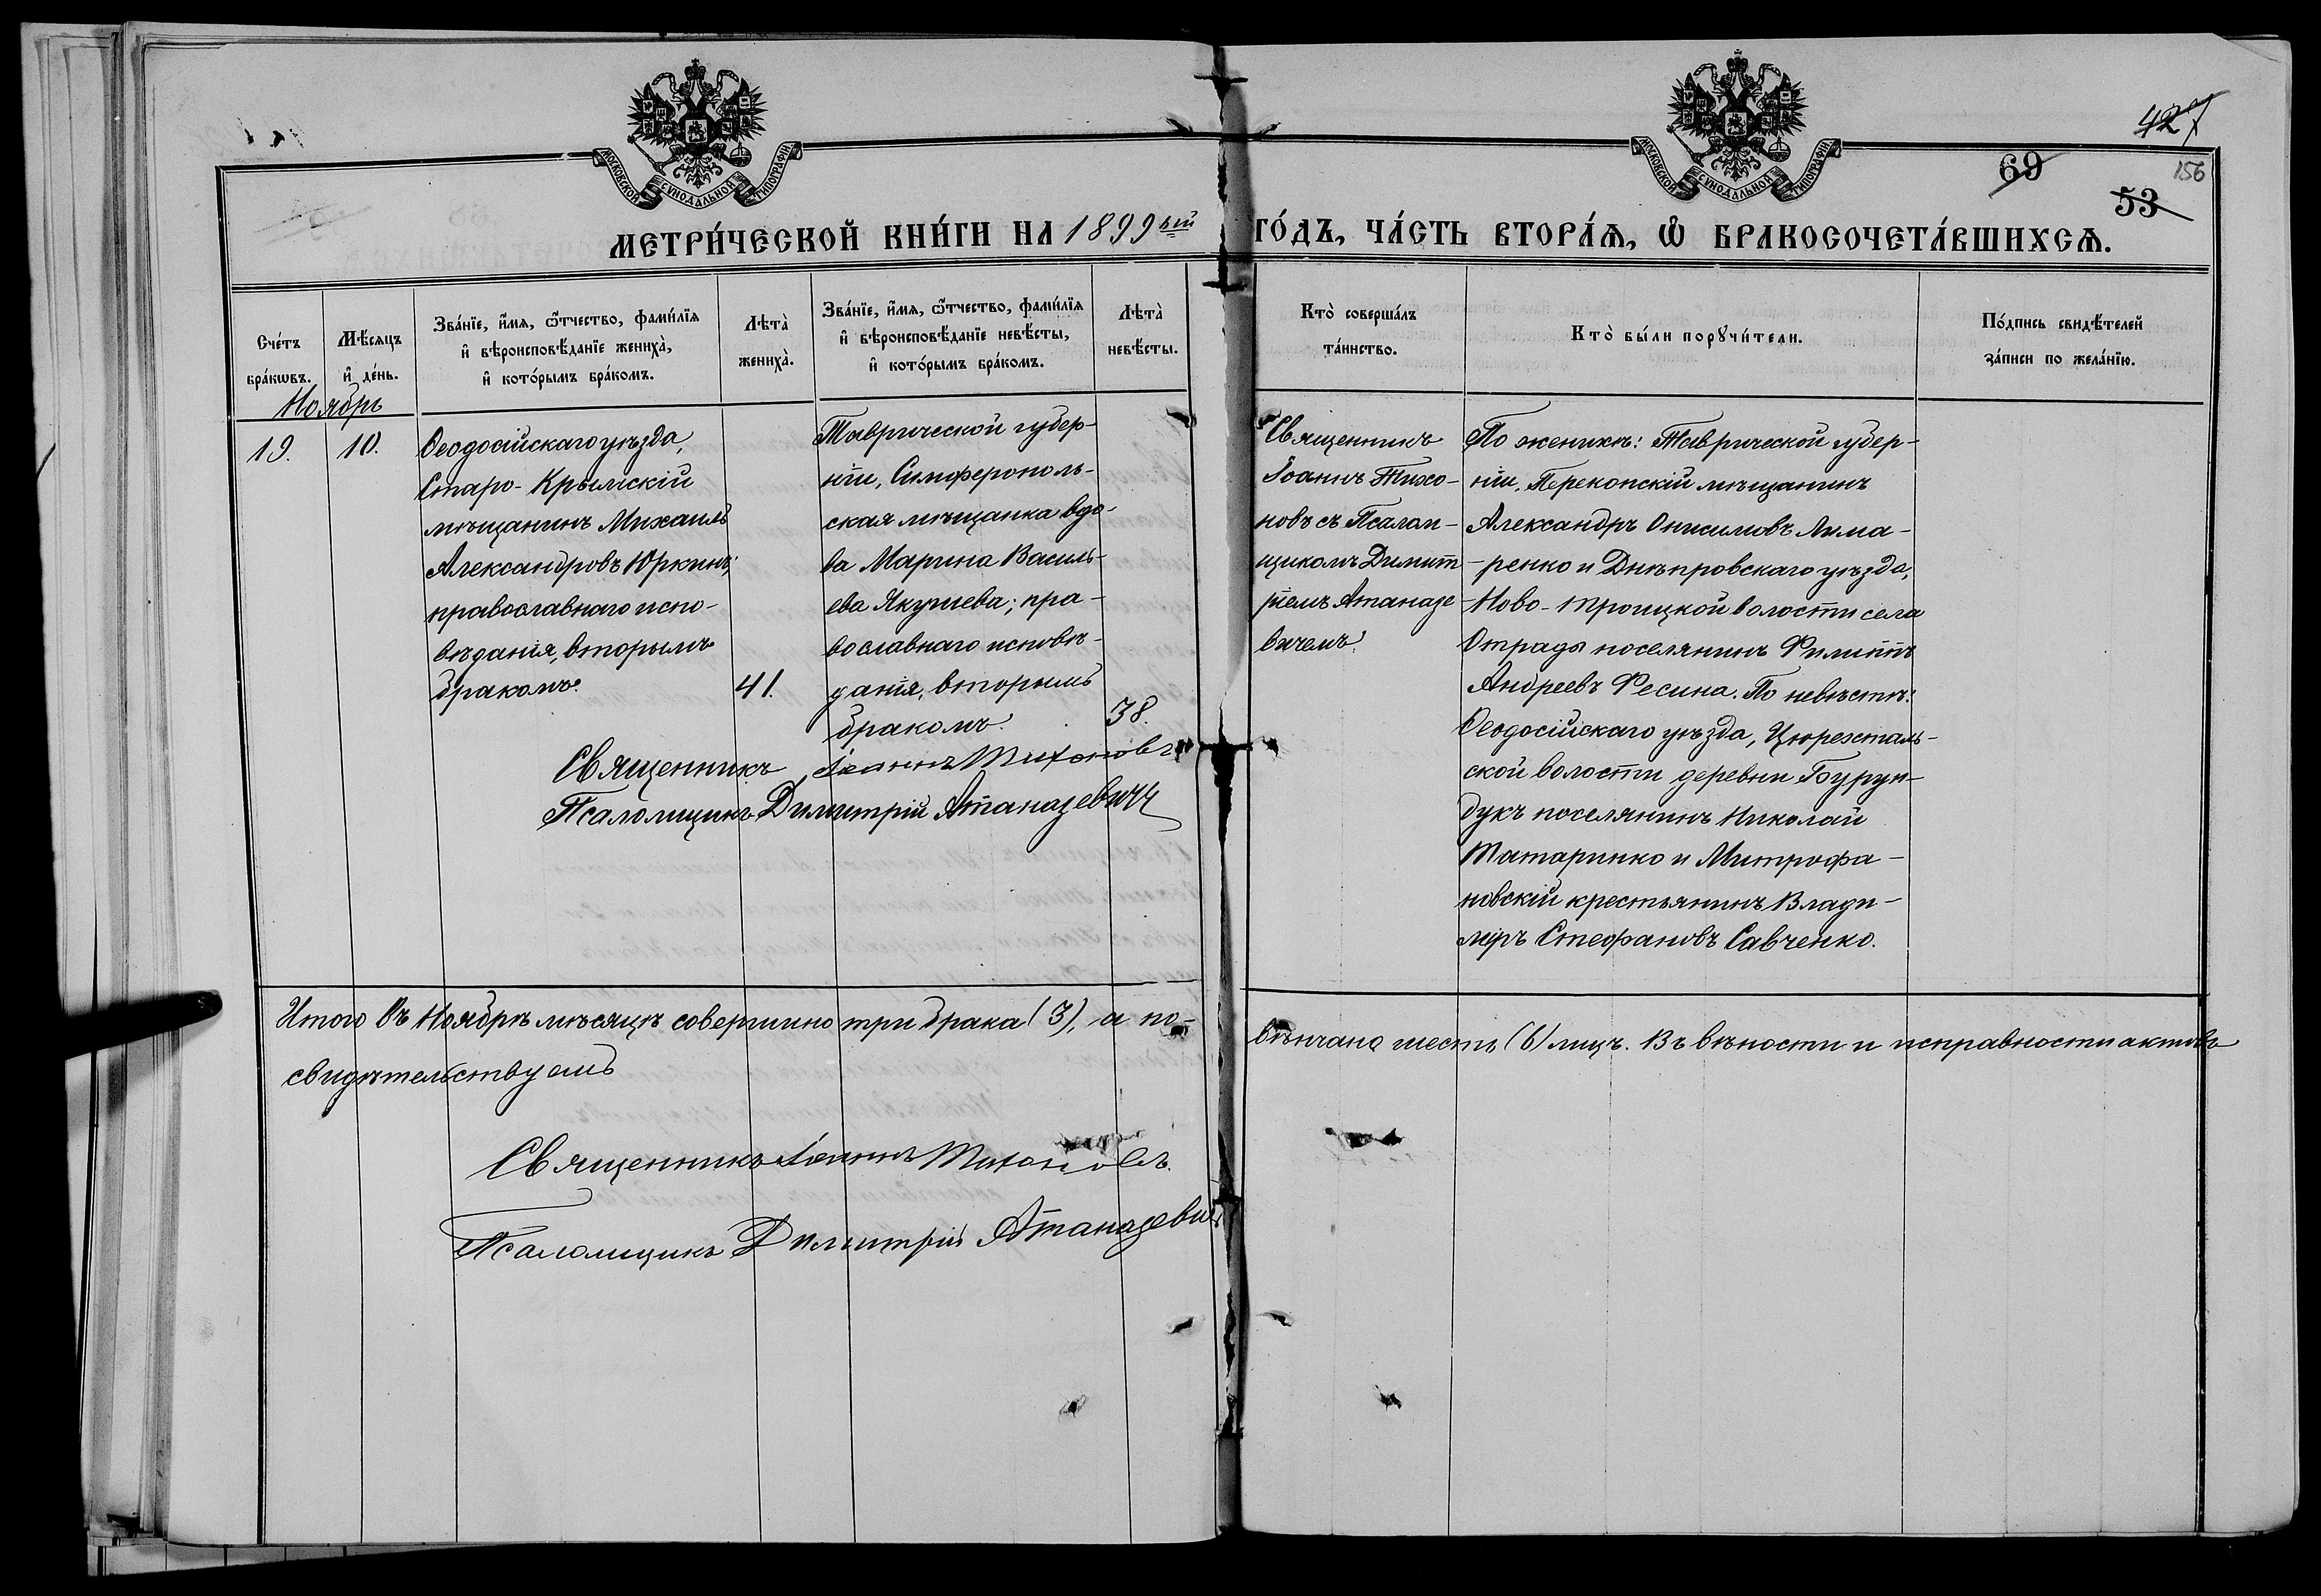 427
69
156
53
МОСКОВСКОЙ СУНОДАЛЬНОЙ ТИПОГРАФІИ
МОСКОВСКОЙ СУНОДАЛЬНОЙ ТИПОГРАФІИ
МЕТРИ́ЧЕСКОЙ КНИ́ГИ НА 1899ый ГО́ДЪ, ЧА́СТЬ ВТОРА́Ѧ, Ѽ БРАКОСОЧЕТА́ВШИХСѦ.
Сче́тъ
бра́кѡвъ.
Мѣ́сяцъ
и҆ де́нь.
Зва́нїе, и҆́мя, ѻ҆́тчество, фами́лїя
и҆ вѣроисповѣ́данїе жениха̀,
и҆ кото́рымъ бра́комъ.
Лѣта̀
жениха̀.
Зва́нїе, и҆́мя, ѻ҆́тчество, фами́лїя
и҆ вѣроисповѣ́данїе невѣ́сты,
и҆ кото́рымъ бра́комъ.
Лѣта̀
невѣ́сты.
Кто̀ соверша́лъ
та́инство.
Кто̀ бы́ли порꙋчи́тели.
По́дпись свидѣ́телей
за́писи по жела́нїю.
Ноябрь
19.
10.
Ѳеодосійскаго уѣзда,
Старо-Крымскій
мѣщанинъ Михаилъ
Александровъ Юркинъ;
православнаго испо-
вѣданія, вторымъ
бракомъ.
41.
Таврической губер-
ніи, Симферополь-
ская мѣщанка вдо-
ва Марина Василь-
ева Якушева; пра-
вославнаго исповѣ-
данія, вторымъ
бракомъ.
38.
Священникъ Іоаннъ Тихоновъ
Псаломщикъ Димитрій Атаназевичъ
Священникъ
Іоаннъ Тихо-
новъ съ Псалом-
щикомъ Димит
ріемъ Атаназе-
вичемъ.
По женихѣ: Таврической губер-
ніи, Перекопскій мѣщанинъ
Александръ Онисимовъ Лима-
-ренко и Днѣпровскаго уѣзда,
Ново-Троицкой волости села
Отрады поселянинъ Филиппъ
Андреевъ Фесина. По невѣстѣ:
Ѳеодосійскаго уѣзда, Цюрехталь-
ской волости деревни Бурун-
дукъ поселянинъ Николай
Татаринко и Митрофа-
новскій крестьянинъ Влади-
міръ Стефановъ Савченко.
Итого въ Ноябрѣ мѣсяцѣ совершено три брака (3), а по-
вѣнчано шесть (6) лицъ. Въ вѣности и исправности актовъ
свидѣтельствуемъ
Священникъ Іоаннъ Тихоновъ.
Псаломщикъ Димитрій Атаназевичъ